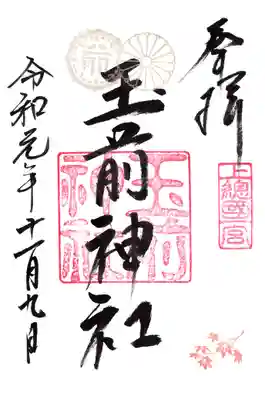 奉拝
上總國一宮
玉前神社
玉前神社
令和元年十一月九日